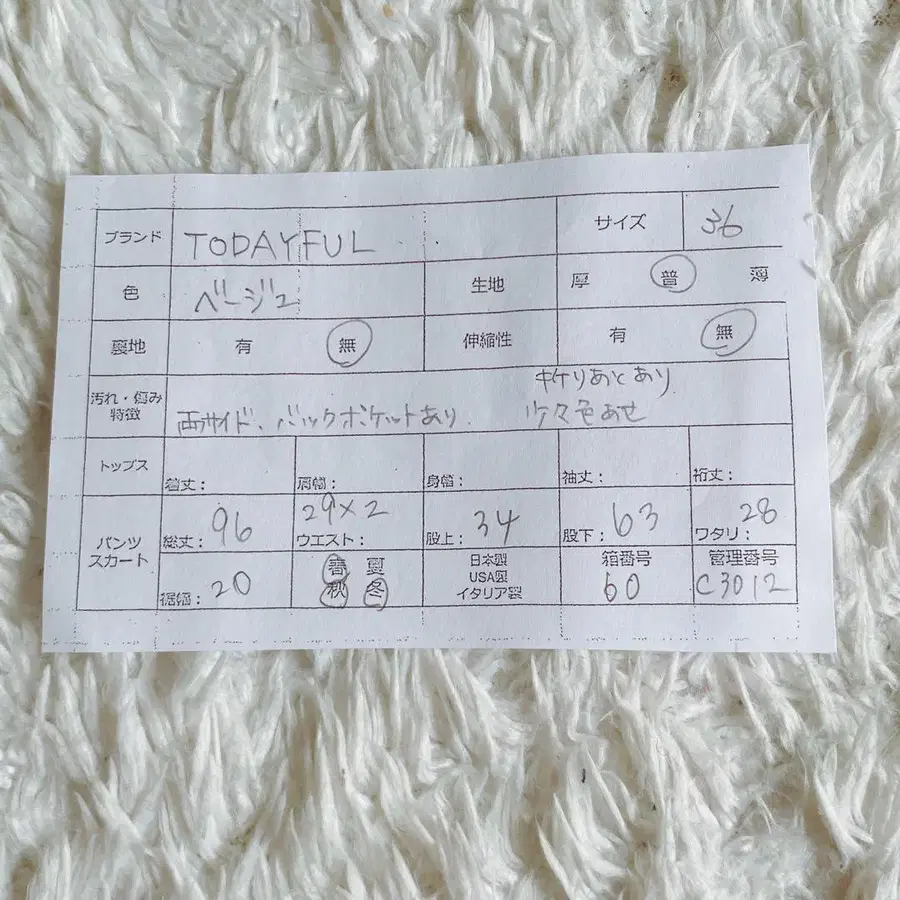 ブランド TODAYFUL サイズ 36
色 ベージュ 生地 厚 普 薄
裏地 有 無 伸縮性 有 無
汚れ・傷み 特徴 両サイド、バックポケットあり キケリあとあり 少々色あせ
トップス 着丈： 肩幅： 身幅： 袖丈： 裄丈：
パンツ スカート 総丈：96 29×2 ウエスト： 股上：34 股下：63 ワタリ：28
裾幅：20 春 夏 秋 冬 日本製 USA製 イタリア製 箱番号 60 管理番号 C3012